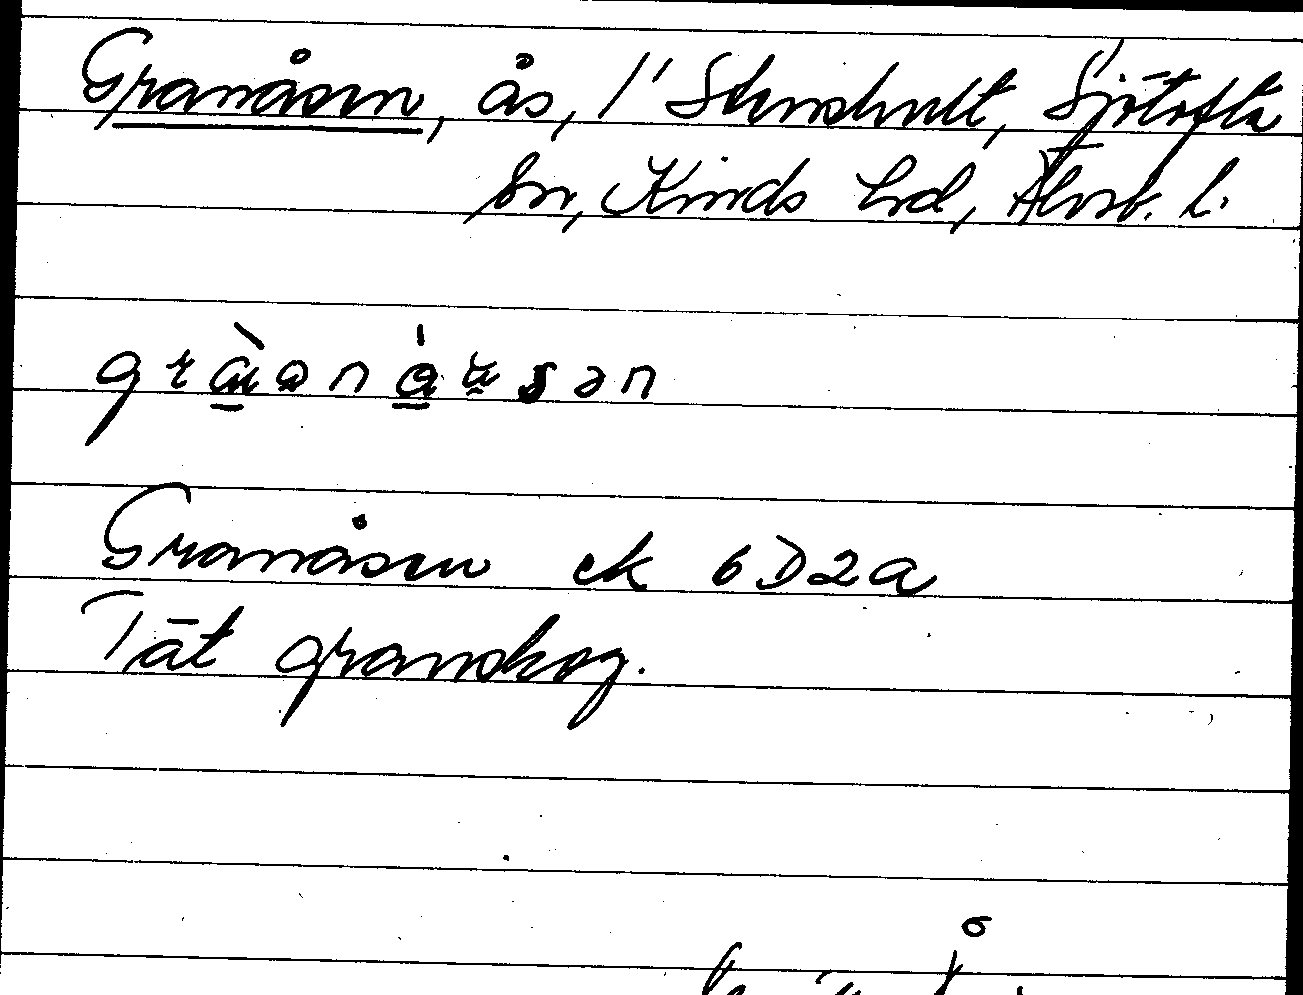 Granåsen, ås, i Stenshult, Sjötofta
sn, Kinds hd, Älvsb. l.
Granåsen ek 6D2a
Tät granskog.